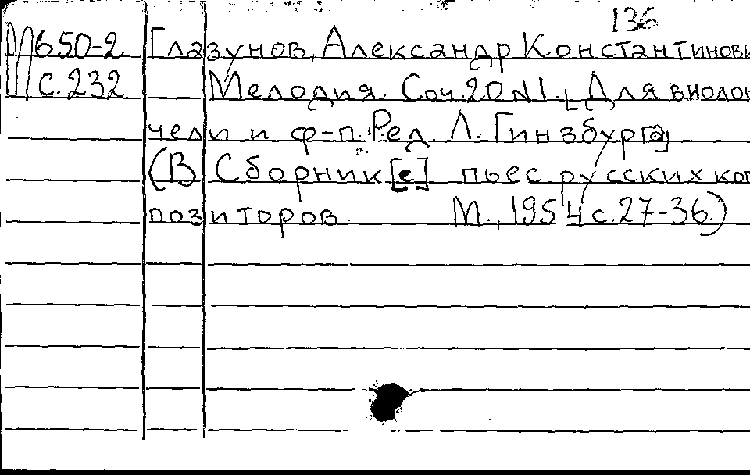 136
П650-2 Глазунов, Александр Константинови
с.232 Мелодия. Соч.20 №1. [Для виолон
чели и ф-п. Ред. Л. Гинзбурга]
(В Сборник[е] пьес русских ком
позиторов. М., 1954 с.27-36.)